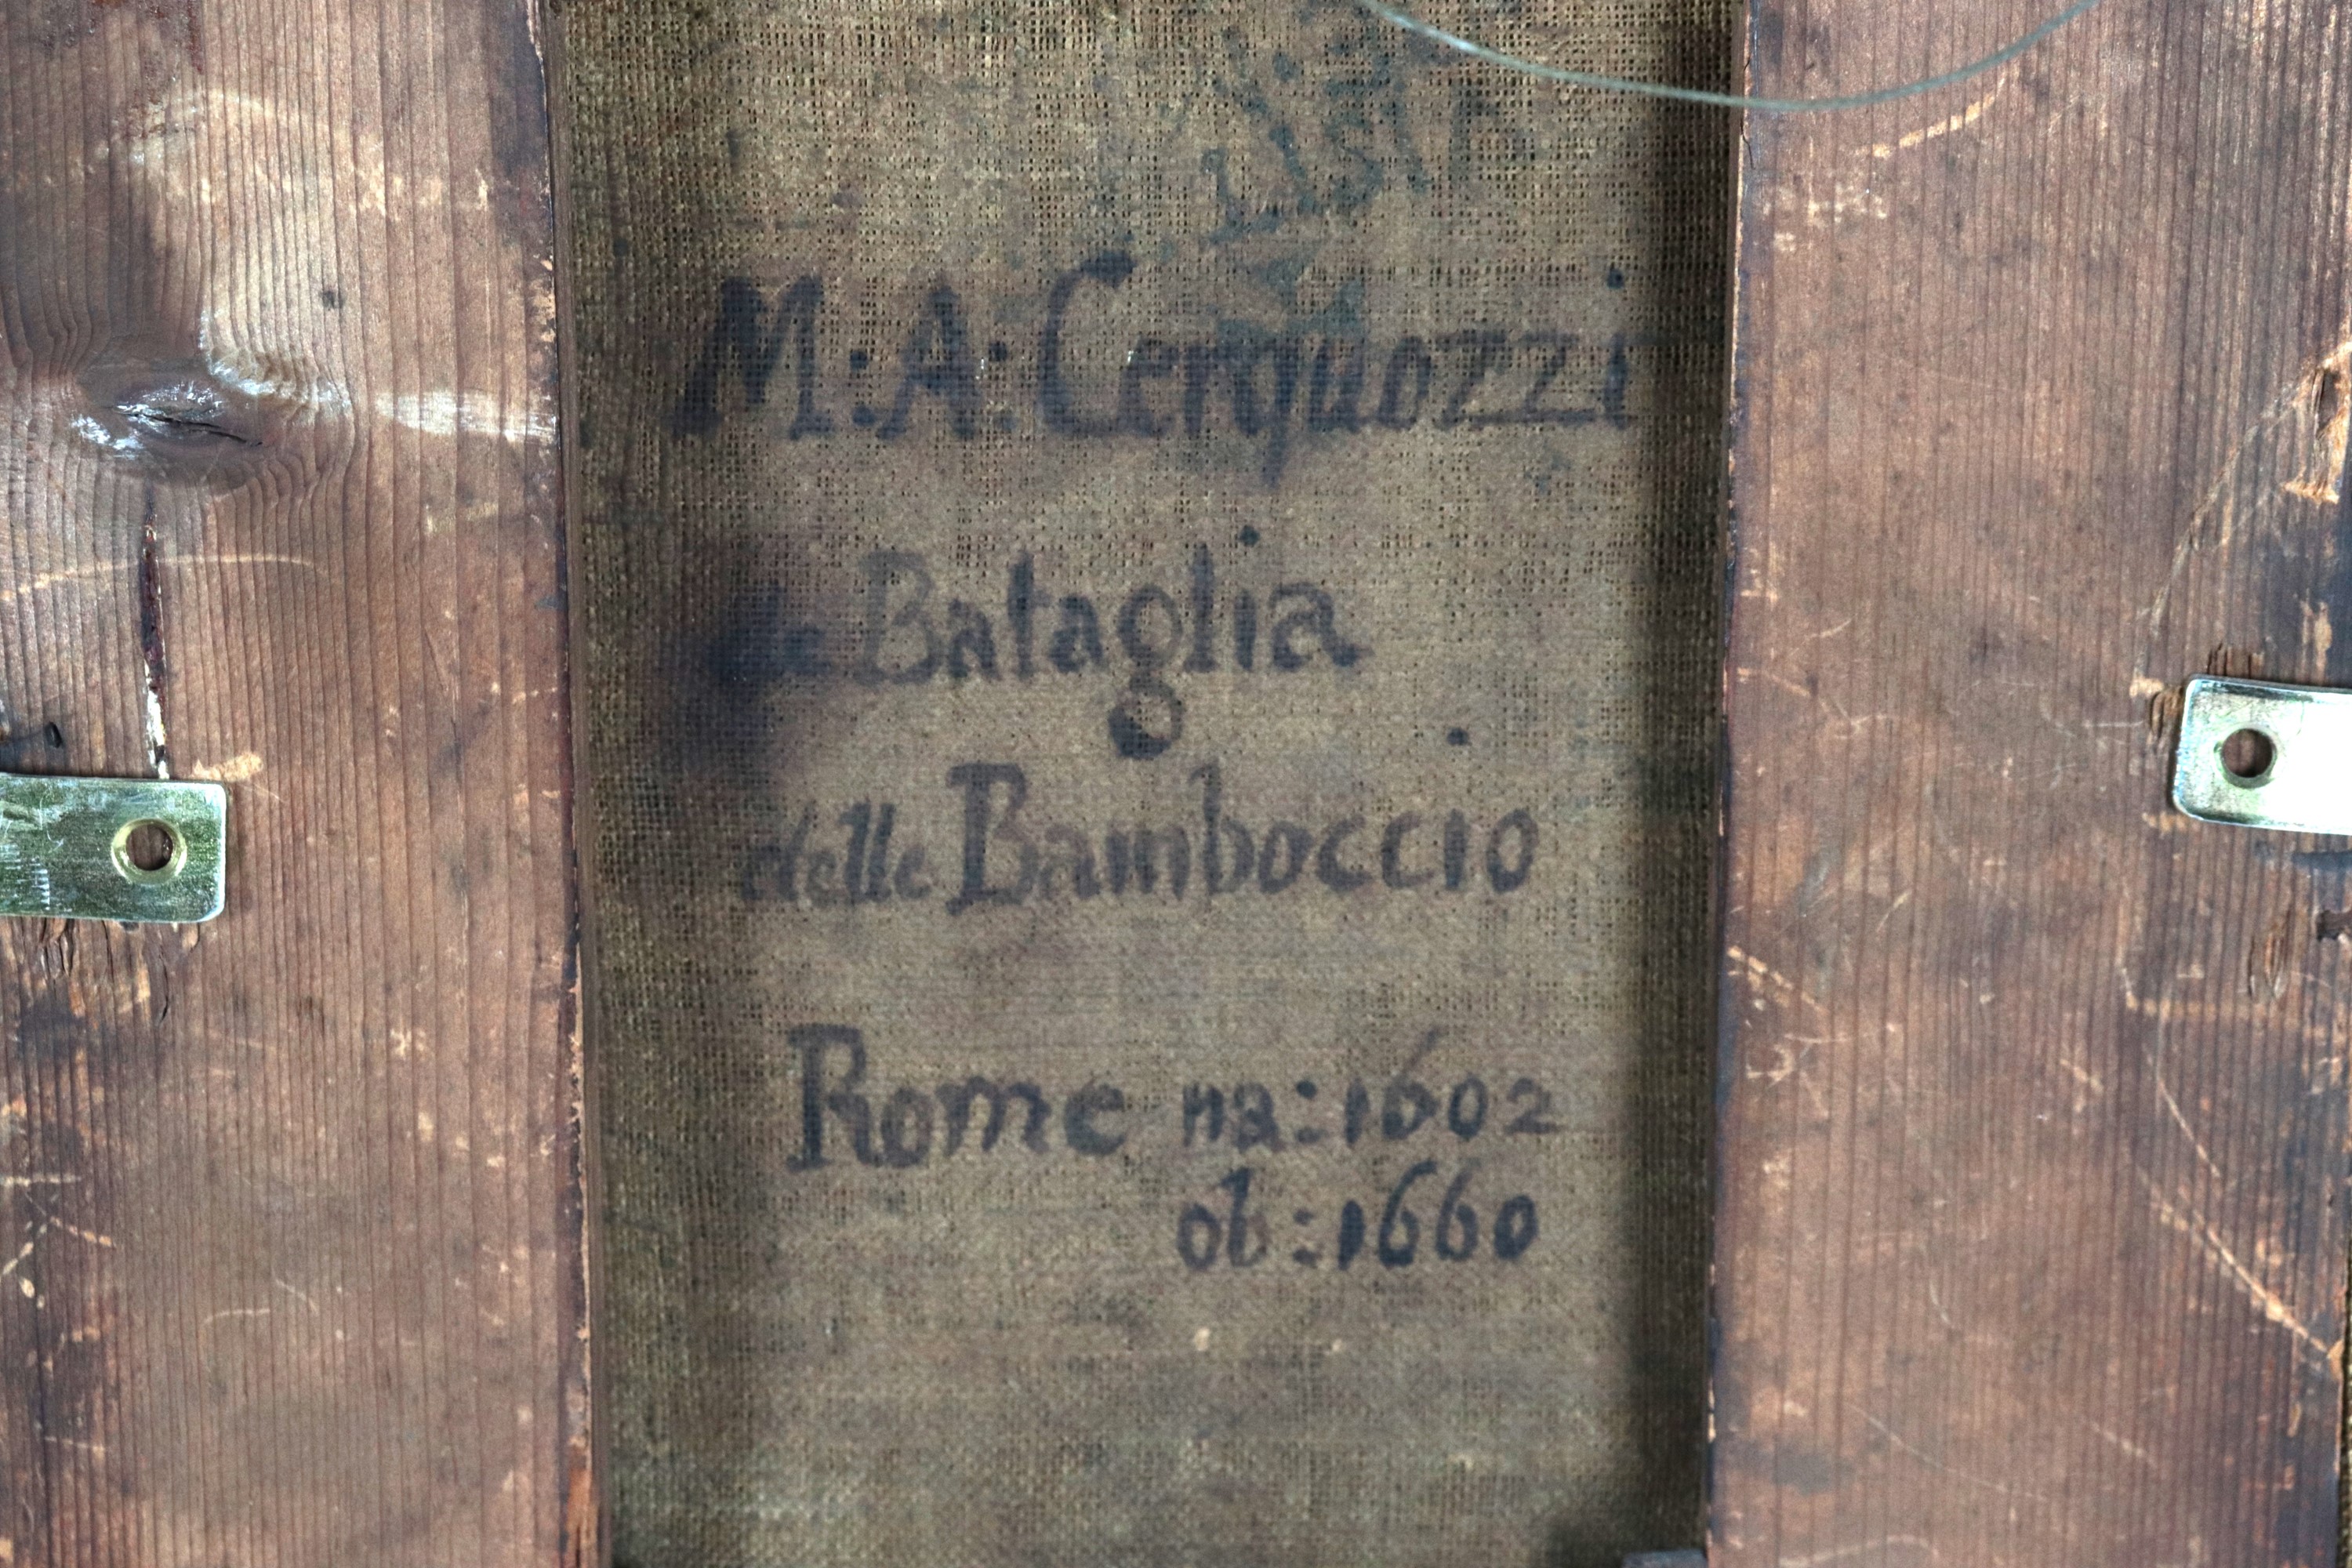 M:A:Cerquozzi
de Bataglia
delle Bamboccio
Rome na:1602
ob:1660